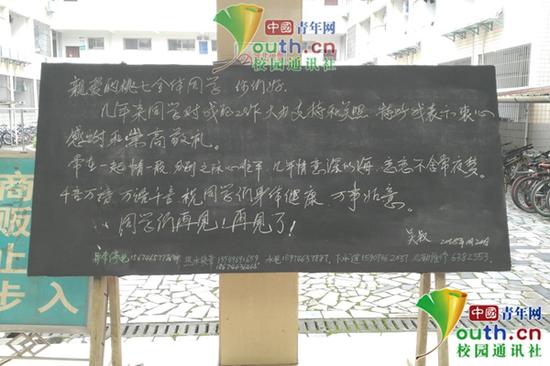 中國青年网
Youth.cn
校园通讯社
亲爱的桃七全体同学 你们好
几年来同学对我的工作大力支持和关照 特此或表示衷心
感谢和崇高敬礼。
常在一起情一般
几年情意深似海 恋恋不舍常夜梦。
千言万语 万语千言 祝同学们身体健康 万事如意。
同学们再见!!再见了!
吴叔
热水
水电
下水道
6382353
商
贩
止
步
入
中國青年网
Youth.cn
校园通讯社